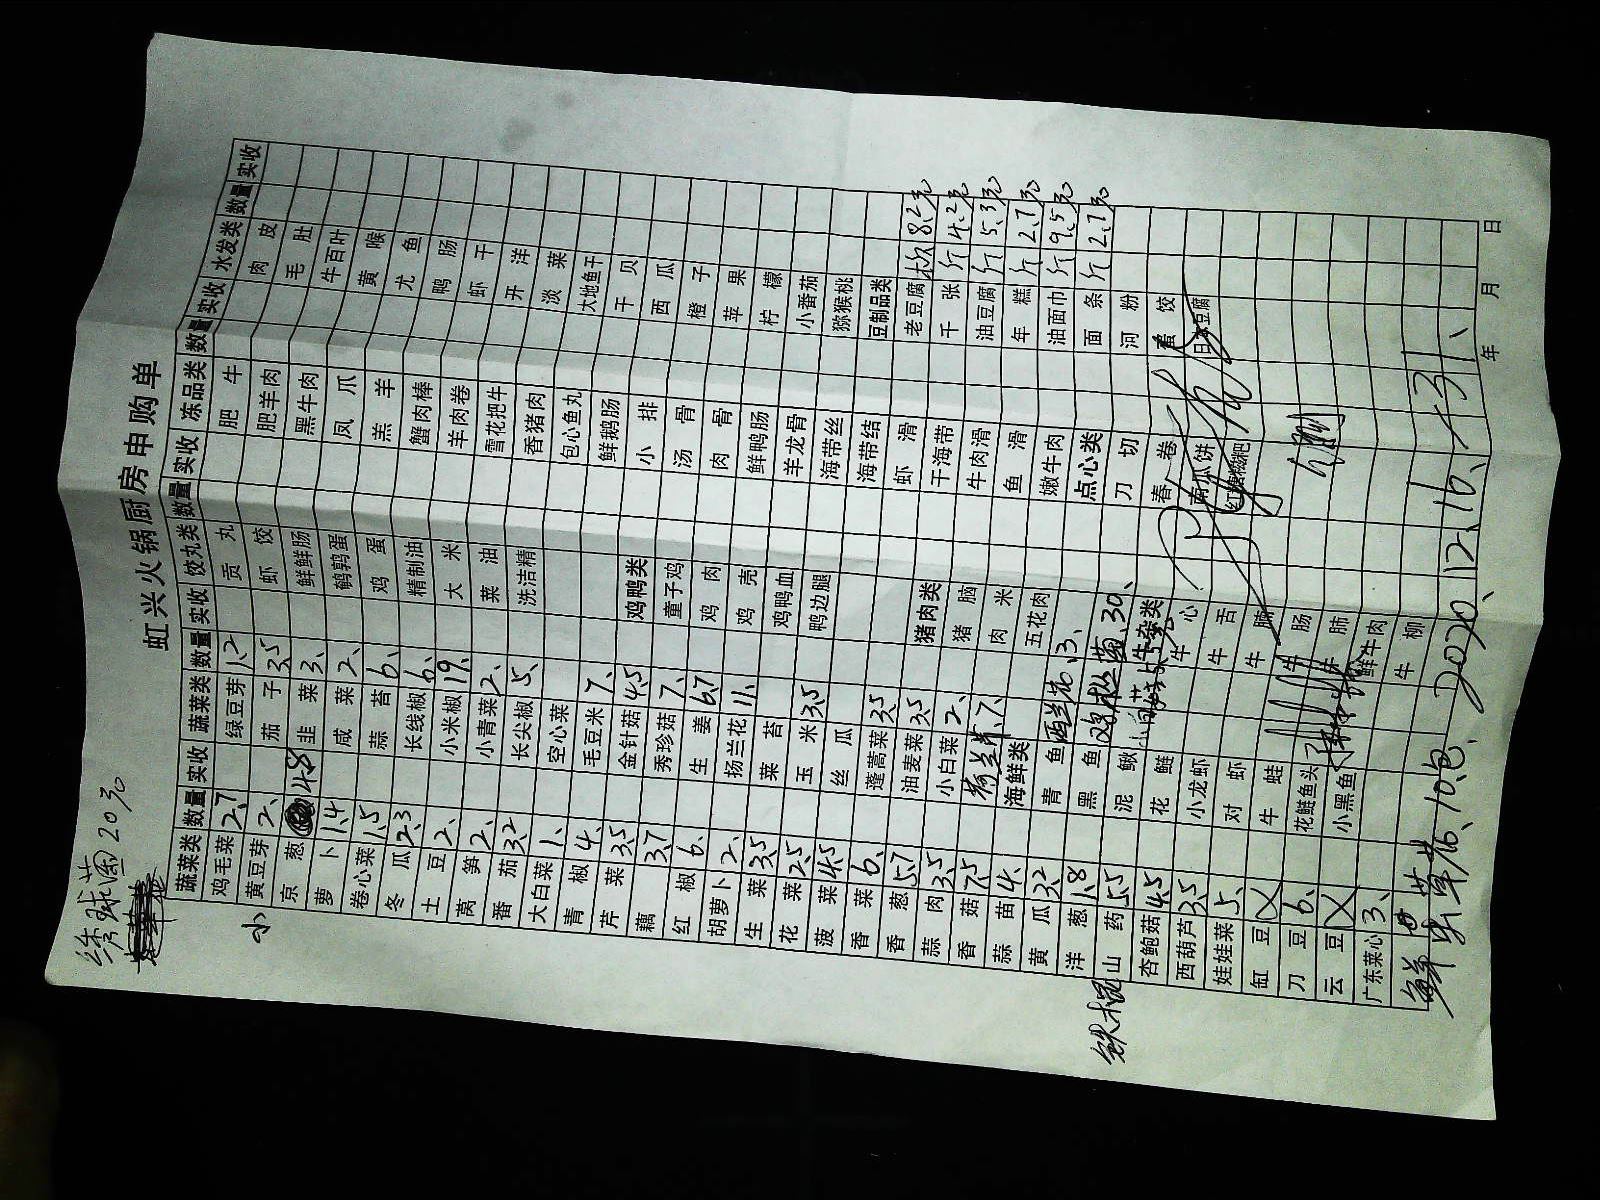 绣球菌20元
虹兴火锅厨房申购单
蔬菜类 数量 实收 蔬菜类 数量 实收 饺丸类 数量 实收 冻品类 数量 实收 水发类 数量 实收
鸡毛菜 2.7 绿豆芽 1.2 贡丸 肥牛 肉皮
小 黄豆芽 2、 茄子 3.5 虾饺 肥羊肉 毛肚
京葱 4.8 韭菜 3、 鲜鲜肠 黑牛肉 牛百叶
萝卜 1.4 咸菜 2、 鹌鹑蛋 凤爪 黄喉
卷心菜 1.5 蒜苔 6、 鸡蛋 羔羊 尤鱼
冬瓜 2.3 长线椒 6、 精制油 蟹肉棒 鸭肠
土豆 2、 小米椒 19、 大米 羊肉卷 虾干
莴笋 2、 小青菜 2、 菜油 雪花把牛 开洋
番茄 3.2 长尖椒 5、 洗洁精 香猪肉 淡菜
大白菜 1、 空心菜 包心鱼丸 大地鱼干
青椒 4、 毛豆米 7、 鲜鹅肠 干贝
芹菜 3.5 金针菇 4.5 鸡鸭类 小排 西瓜
藕 3.7 秀珍菇 7、 童子鸡 汤骨 橙子
红椒 6、 生姜 6.7 鸡肉 肉骨 苹果
胡萝卜 2、 扬兰花 11、 鸡壳 鲜鸭肠 柠檬
生菜 3.5 菜苔 鸡鸭血 羊龙骨 小番茄
花菜 2.5 玉米 3.5 鸭边腿 海带丝 猕猴桃
菠菜 4.5 丝瓜 海带结 豆制品类
香菜 6、 蓬蒿菜 3.5 虾滑 老豆腐 板 8.2元
香葱 5.7 油麦菜 3.5 猪肉类 干海带 千张 斤 4.2元
蒜肉 3.5 小白菜 2、 猪脑 牛肉滑 油豆腐 斤 5.3元
香菇 7.5 荷兰芹、7、 肉米 鱼滑 年糕 斤 2.7元
蒜苗 4、 海鲜类 五花肉 嫩牛肉 油面巾 斤 9.5元
黄瓜 3.2 青鱼 西兰苔、3、 点心类 面条 斤 2.7元
洋葱 1.8 黑鱼 鸡枞菌、30、 刀切 河粉
铁棍 山药 5.5 泥鳅 牛杂类 春卷 蛋饺
杏鲍菇 4.5 花鲢 牛心 南瓜饼 日本豆腐
西葫芦 3.5 小龙虾 牛舌 红糖糍粑
娃娃菜 5、 对虾
缸豆 牛蛙 牛肠
刀豆 6、 花鲢鱼头
云豆 小黑鱼 鲜牛肉
广东菜心 3、 牛柳
2020、12、16、
年 月 日